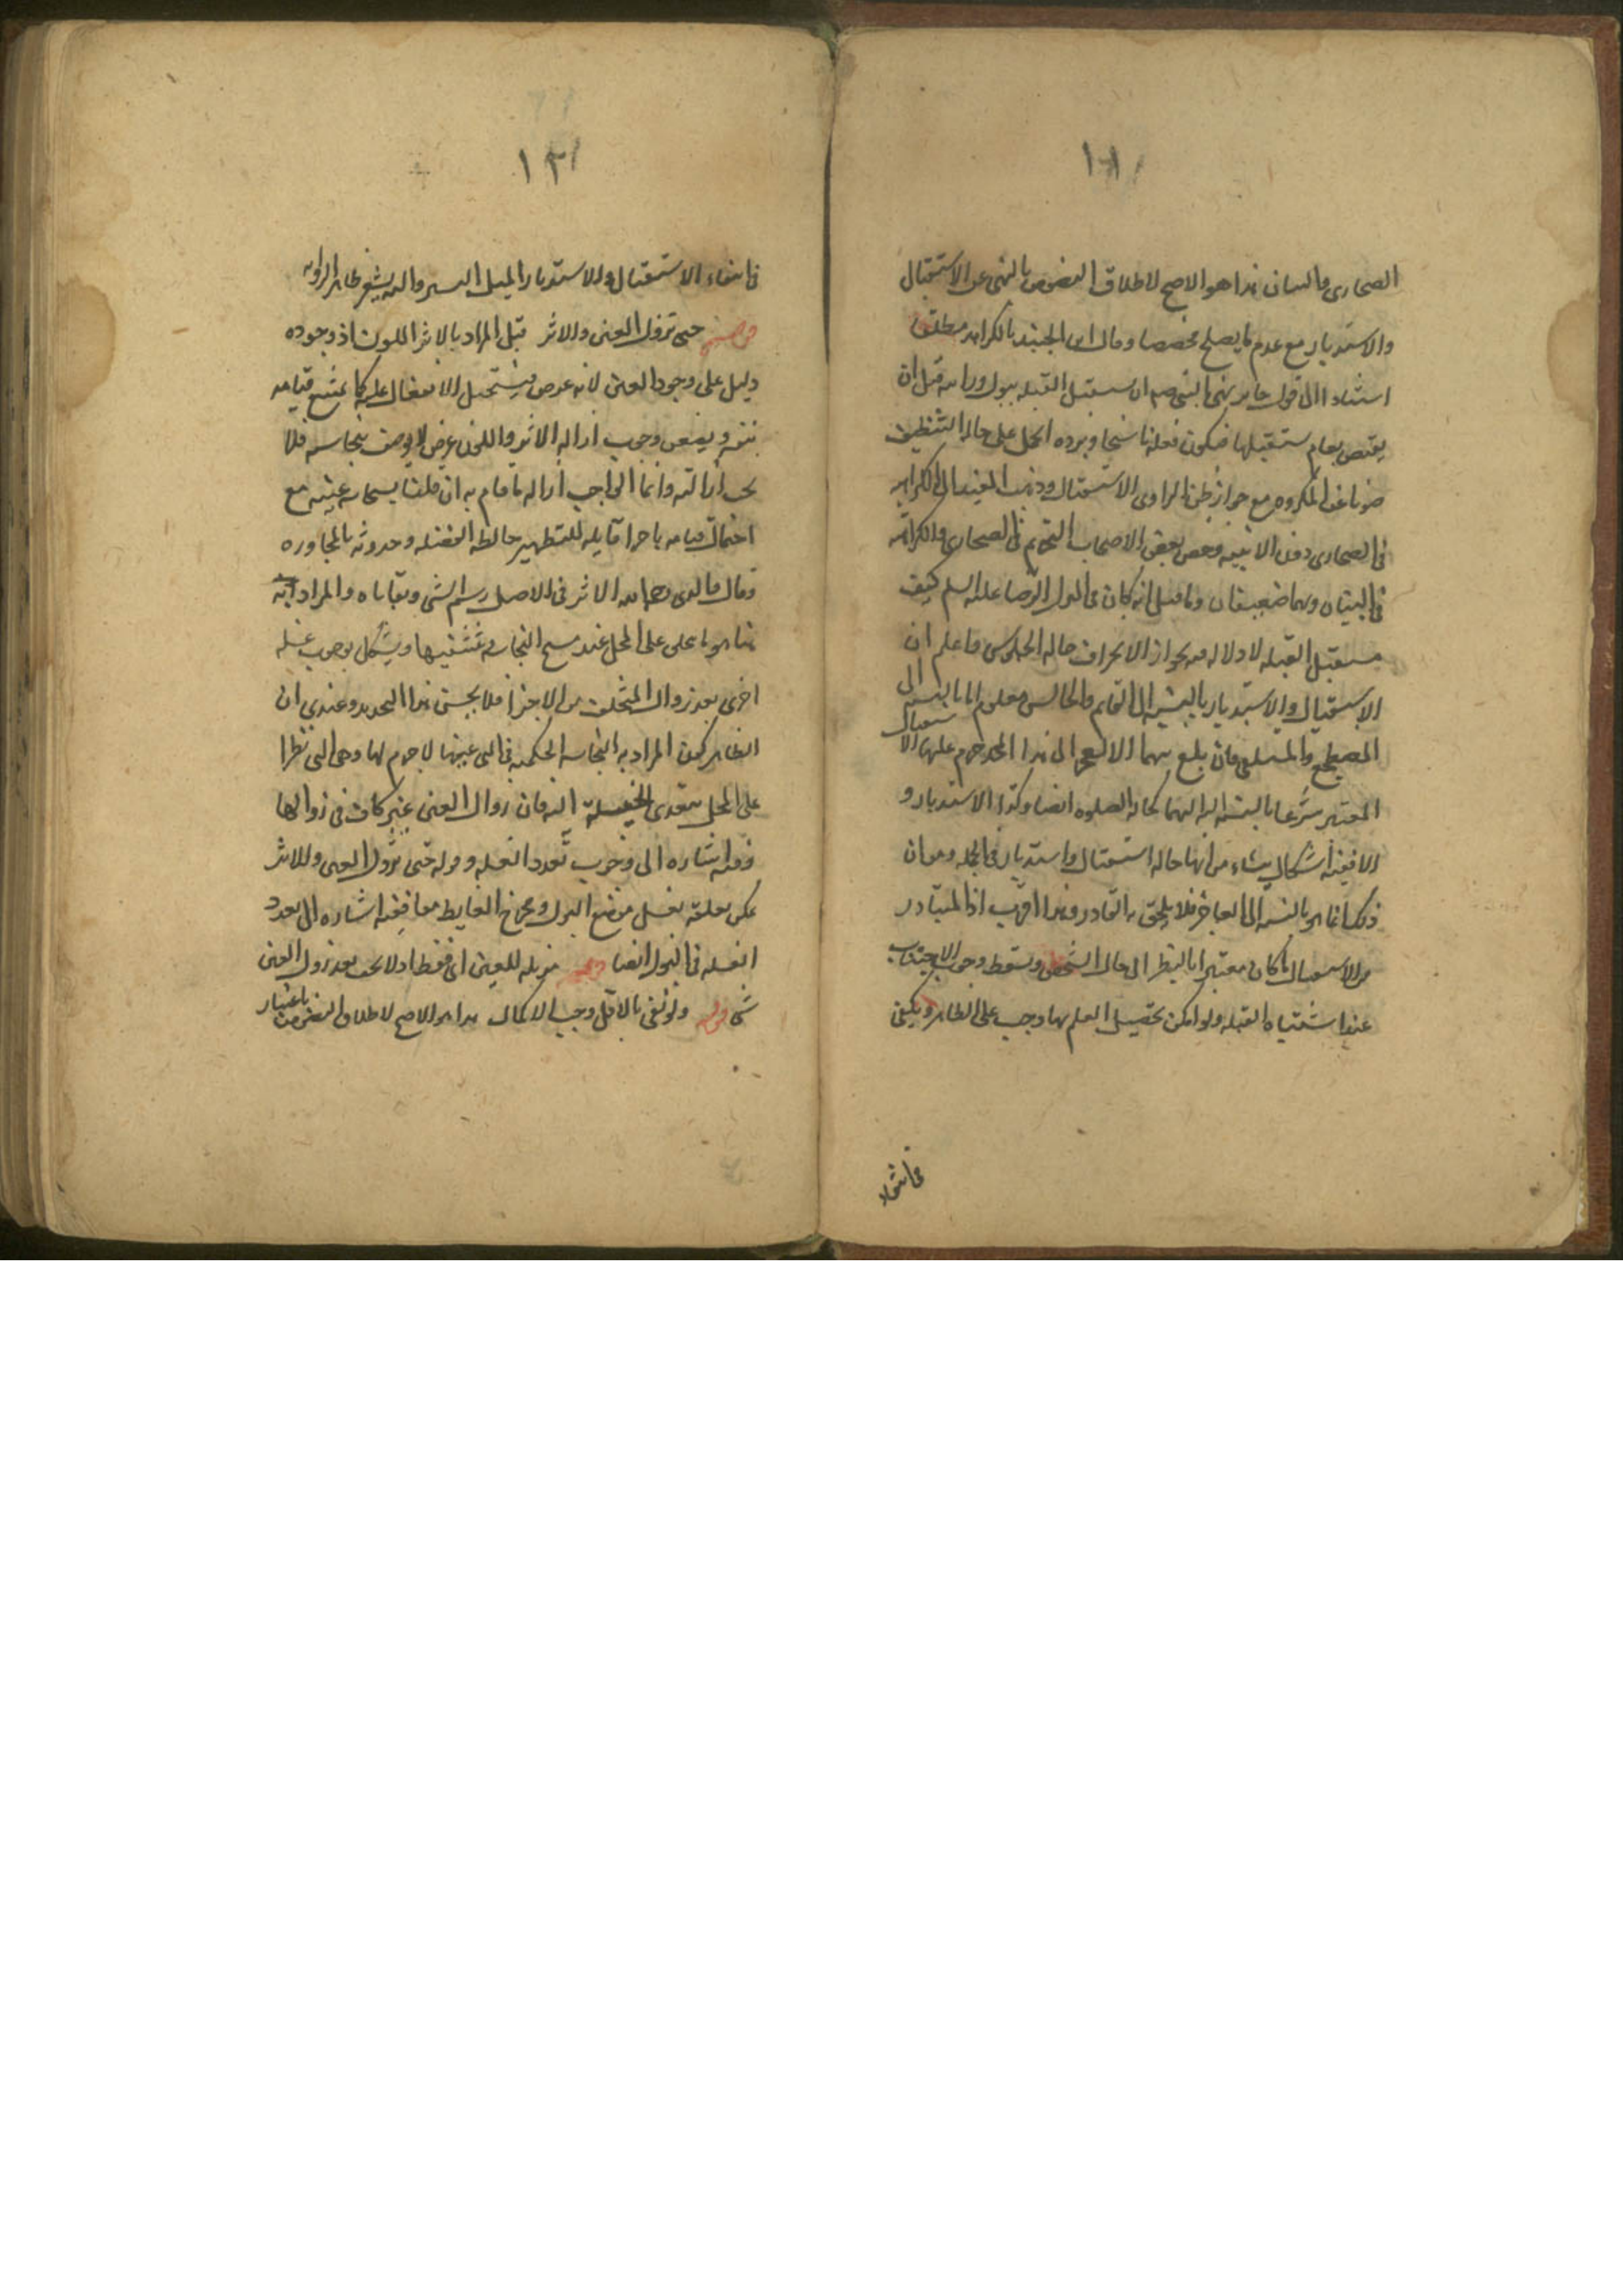 الصحارى والبنيان هذا هو الاصح لاطلاق النصوص بالنهى عن الاستقبال
والاستدبار مع عدم ما يصلح مخصصا وقال ابن الجنيد بالكراهه مطلقا
استنادا الى قول جابر نهى النبى صم ان يستقبل القبله ببول ورايته قبل ان
يقبض بعام يستقبلها فيكون فعله ناسخا ويرده الحمل على حاله التنظيف
صونا عن المكروه مع جواز ظن الراوى الاستقبال وذهب المفيد الى الكراهه
فى الصحارى دون الابنيه وخص بعض الاصحاب التحريم فى الصحارى والكراهه
فى البنيان وهما ضعيفان وما قيل انه كان فى منزل الرضا عليه السلم كنيف
مستقبل القبله لا دلاله فيه بجواز الانحراف حاله الجلوس واعلم ان
الاستقبال والاستدبار بالنسبه الى القايم والجالس معلوم اما بالنسبه الى
المضطجع والمستلقى فان بلغ بهما الا العجز الى هذا الحد حرم عليهما الاستقبال
المعتبر شرعا بالنسبه اليهما كحاله الصلوه ايضا وكذا الاستدبار و
الا ففيه اشكال ينشاء من انها حاله استقبال واستدبار فى الجمله ومن ان
ذلك انما هو بالنسبه الى العاجز فلا يلحق به القادر وهذا اقرب اذ المتبادر
من الاستقبال ما كان معتبرا بالنظر الى حال الشخص ويسقط وجوب الاجتناب
عند اشتباه القبله ولو امكن تحصيل العلم بها وجب على الظاهر ويكفى
فى انتفاء
١٢١
فى انتفاء الاستقبال والاستدبار الميل اليسير واليه يشير ظاهر الروايه
قوله حتى تزول العين والاثر قيل المراد بالاثر اللون اذ وجوده
دليل على وجود العين لانه عرض فيستحيل الانتقال عليه كما يمتنع قيامه
بنفسه ويضعف وجوب ازاله الاثر واللون عرض لا يوصف بنجاسه فلا
يجب ازالته وانما الواجب ازاله ما قام به ان قلنا بنجاسه عينه مع
احتمال قيامه باجزا قابله للتطهير خالطه الفضله وحدوثه بالمجاوره
وقال والدى رحمه الله الاثر فى الاصل رسم الشى وبقاياه والمراد به
هنا هو ما بقى على المحل عند مسح النجاسه وتنشيفها ويشكل بوجوب غسله
اخرى بعد زوال المتخلف من الاجزا فلا يحسن هذا التحديد وعندى ان
الظاهر كون المراد به النجاسه الحكميه فى التى عينها لا جرم لها وهى التى نظرا
على المحل بتعدى العينيه اليه فان زوال العين غير كاف فى زوالها
ففيه اشاره الى وجوب تعدد الغسل وقوله حتى تزول العين والاثر
يمكن تعلقه بغسل موضع البول ومخرج الغايط معا ففيه اشاره الى تعدد
الغسله فى البول ايضا مزيله للعين اى فقط اذ لا يجب بعد زوال العين
شى قوله ولو نقى بالاقل وجب الاكمال هذا هو الاصح لاطلاق النصوص باعتبار